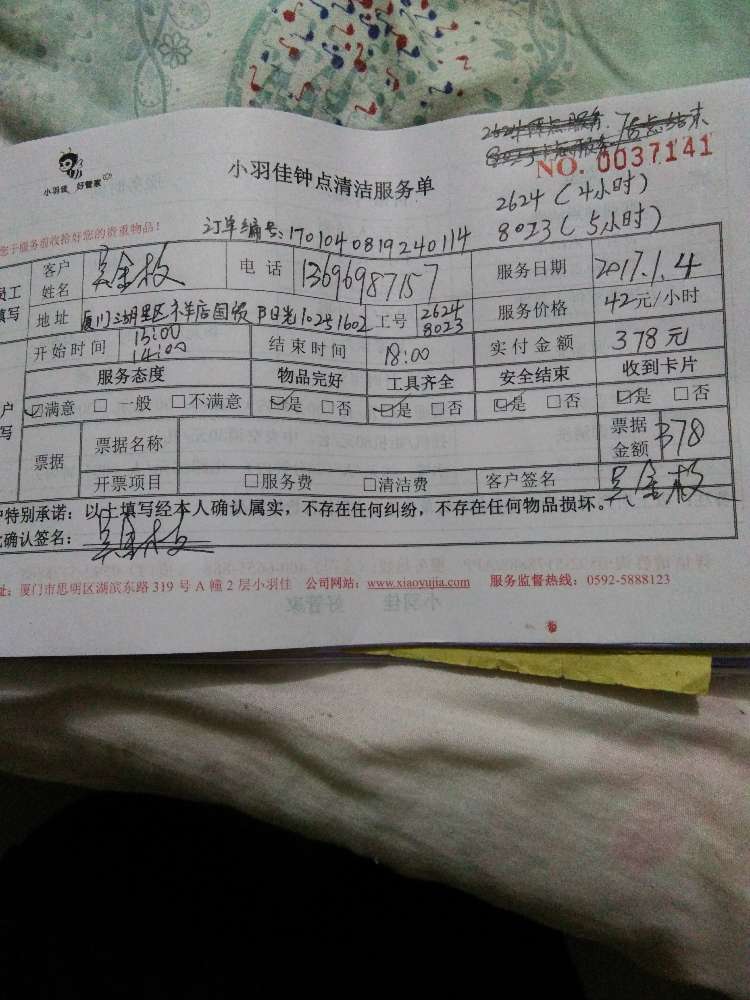 小羽佳 好管家
小羽佳钟点清洁服务单
NO. 0037141
2624（4小时）
8023（5小时）
您于服务前收拾好您的贵重物品！
订单编号：170104081924 0114
员工填写
客户姓名 吴金枚 电话 13696987157 服务日期 2017.1.4
地址 工号 2624 8023 服务价格 42元/小时
开始时间 13:00 14:00 结束时间 18:00 实付金额 378元
服务态度 物品完好 工具齐全 安全结束 收到卡片
☑满意 □一般 □不满意 ☑是 □否 ☑是 □否 ☑是 □否 ☑是 □否
票据 票据名称 票据金额 378
开票项目 □服务费 □清洁费 客户签名 吴金枚
户特别承诺：以上填写经本人确认属实，不存在任何纠纷，不存在任何物品损坏。
此确认签名： 吴金枚
址：厦门市思明区湖滨东路 319 号 A 幢 2 层小羽佳 公司网站：www.xiaoyujia.com 服务监督热线：0592-5888123